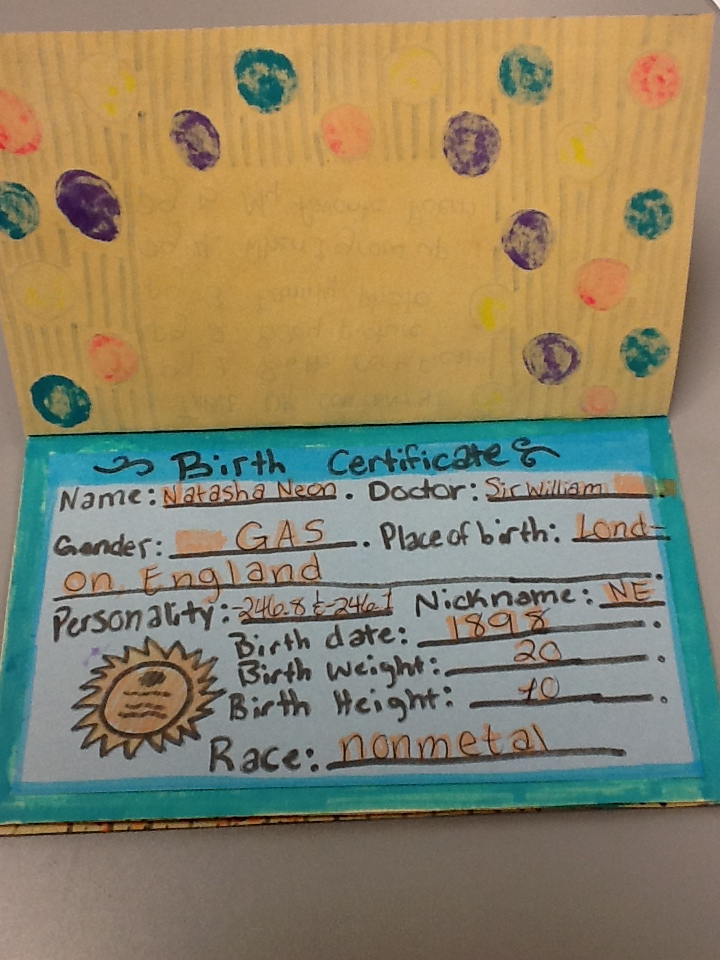 Birth Certificate
Name: Natasha Neon. Doctor: Sir William
Gender: GAS. Place of birth: Lond-
on, England.
Personality: -246.8 & -246.1 Nickname: NE
Birth date: 1898.
Birth weight: 20.
Birth Height: 10.
Race: nonmetal